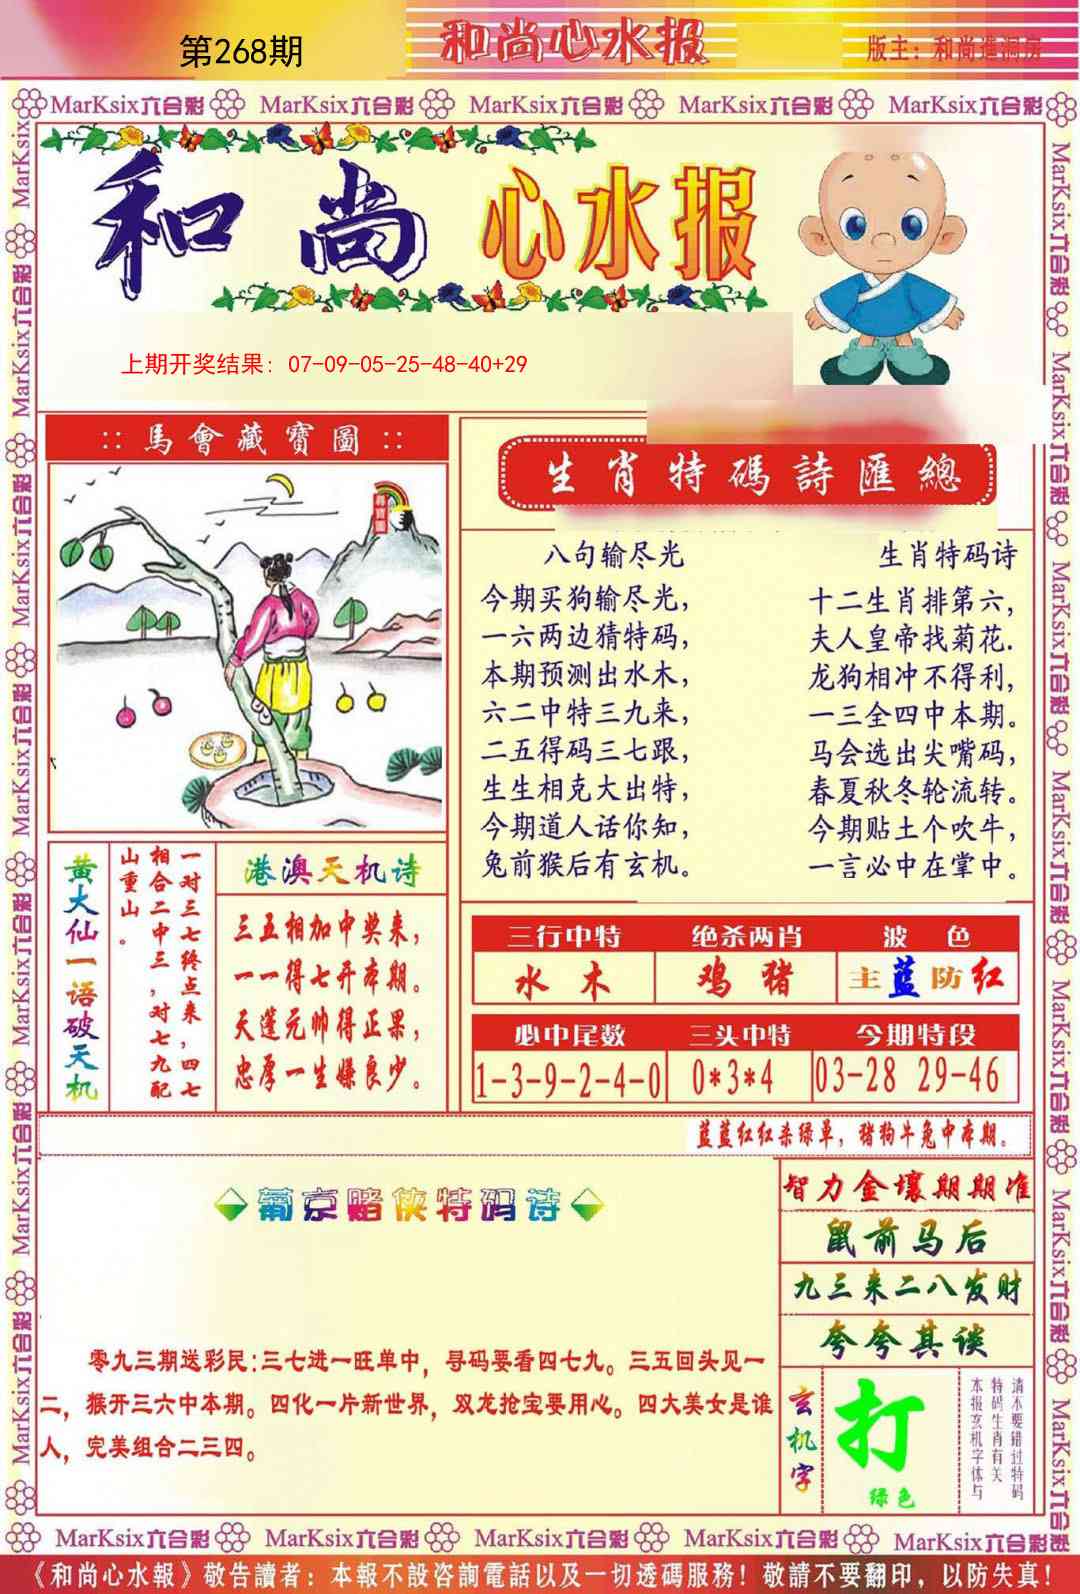 第268期
和尚心水报
版主：和尚進洞房
MarKsix六合彩 MarKsix六合彩 MarKsix六合彩 MarKsix六合彩 MarKsix六合彩
和尚心水报
上期开奖结果：07-09-05-25-48-40+29
:: 馬會藏寶圖 ::
生肖特碼詩匯總
八句输尽光
今期买狗输尽光，
一六两边猜特码，
本期预测出水木，
六二中特三九来，
二五得码三七跟，
生生相克大出特，
今期道人话你知，
兔前猴后有玄机。
生肖特码诗
十二生肖排第六，
夫人皇帝找菊花．
龙狗相冲不得利，
一三全四中本期。
马会选出尖嘴码，
春夏秋冬轮流转。
今期贴土个吹牛，
一言必中在掌中。
黄大仙一语破天机
一对三七终点来，四七
相合二中三，对七九配
山重山。
港澳天机诗
三五相加中奖来，
一一得七开本期。
天蓬元帅得正果，
忠厚一生嫌良少。
三行中特 绝杀两肖 波色
水木 鸡猪 主蓝防红
必中尾数 三头中特 今期特段
1-3-9-2-4-0 0*3*4 03-28 29-46
蓝蓝红红杀绿单，猪狗牛兔中本期。
葡京赌侠特码诗
零九三期送彩民：三七进一旺单中，寻码要看四七九。三五回头见一
二，猴开三六中本期。四化一片新世界，双龙抢宝要用心。四大美女是谁
人，完美组合二三四。
智力金壤期期准
鼠前马后
九三来二八发财
夸夸其谈
玄机字
打
绿色
请不要错过特码
特码生肖有关
本报玄机字体与
MarKsix六合彩 MarKsix六合彩 MarKsix六合彩 MarKsix六合彩 MarKsix六合彩
《和尚心水報》敬告讀者：本報不設咨詢電話以及一切透碼服務！敬請不要翻印，以防失真！